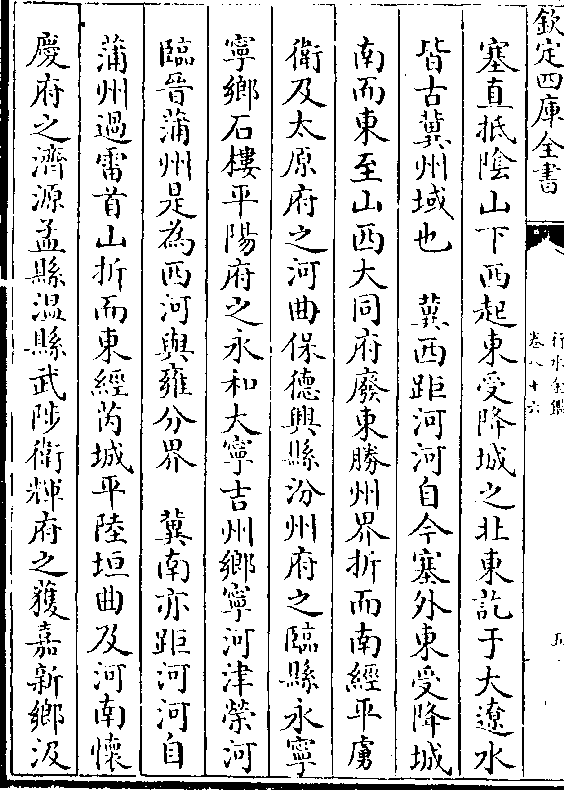 欽定四庫全書
行水金鑑
卷八十六
五
塞直抵陰山下西起東受降城之北東訖于大遼水
皆古冀州域也　冀西距河河自今塞外東受降城
南而東至山西大同府廢東勝州界折而南經平虜
衛及太原府之河曲保德興縣汾州府之臨縣永寧
寧鄉石樓平陽府之永和大寧吉州鄉寧河津榮河
臨晉蒲州是為西河與雍分界　冀南亦距河河自
蒲州過雷首山折而東經芮城平陸垣曲及河南懷
慶府之濟源孟縣溫縣武陟衛輝府之獲嘉新鄉汲